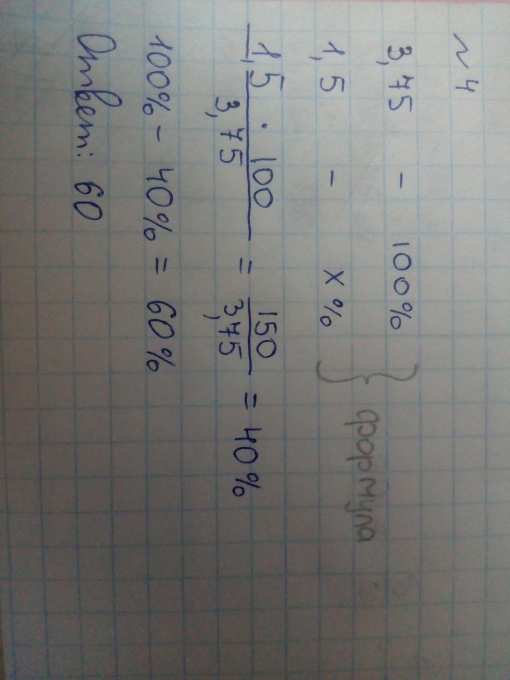 ~4
3,75 - 100%
1,5 - x% } формула
1,5 · 100 / 3,75 = 150 / 3,75 = 40%
100% - 40% = 60%
Ответ: 60